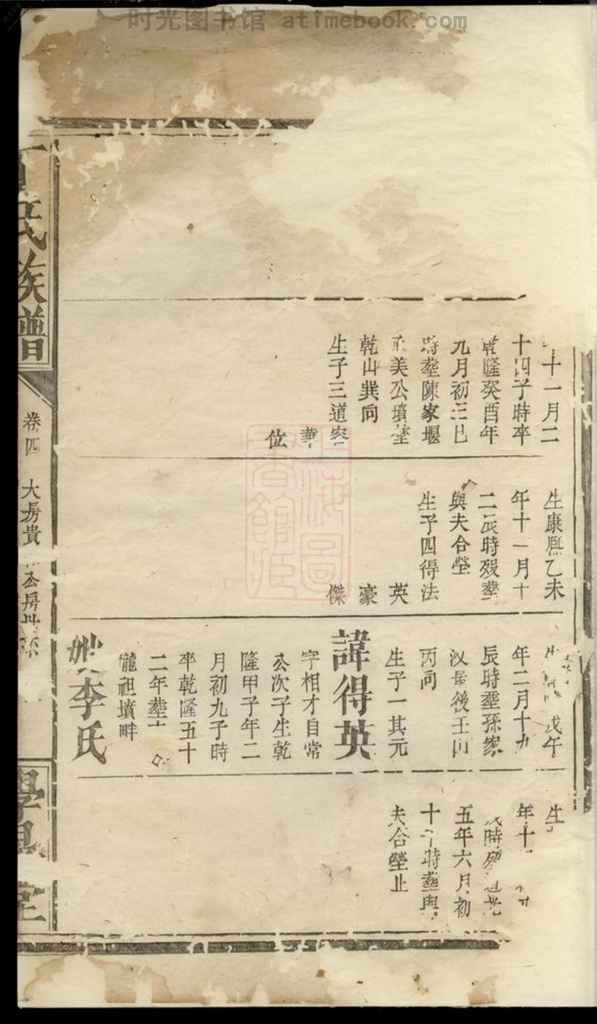 时光图书馆 - atimebook.com
十一月二
十四子時卒
乾隆癸酉年
九月初三巳
時塟陳家堰
美公墳塋
乾山巽向
生子三道
位
生康熙乙未
年十一月十
二辰時殁塟
與夫合塋
生子四得法
英
豪
傑
戊午
年二月十九
辰時塟孫家
後壬山
丙向
生子一其元
諱得英
字相才自常
公次子生乾
隆甲子年二
月初九子時
卒乾隆五十
二年塟
龍祖墳畔
李氏
生
年十
時殁道光
五年六月初
十 時塟與
夫合塋止
氏族譜
卷四
大房貴 公房
學
堂